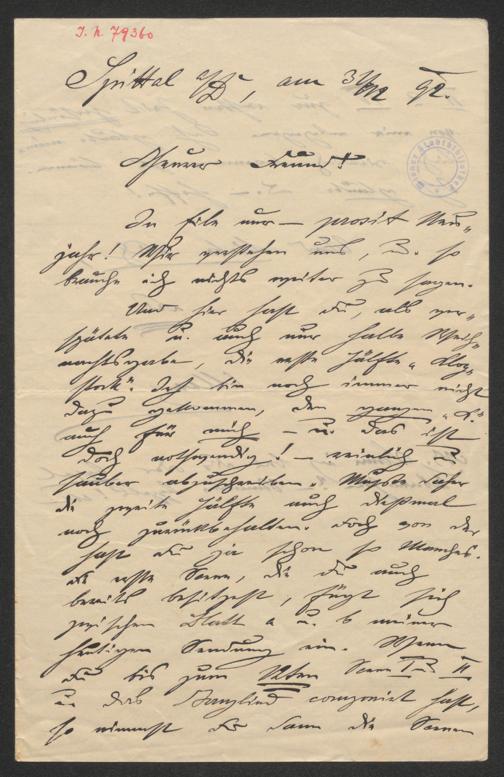 I. N. 79360
Spittal a/D, am 31/12 92.
Theurer Freund!
In Eile nur – prosit Neu-
jahr! Wir verstehen uns, u. so
brauche ich nichts weiter zu sagen.
Und hier hast du, als ver-
spätete u. auch nur halbe Weih-
nachtsgabe, die erste Hälfte
Ich bin noch immer nicht
dazu gekommen, den ganzen
auch für mich – u. das ist
doch nothwendig! – reinlich u.
sauber abzuschreiben. Mußte daher
die zweite Hälfte auch dießmal
noch zurückbehalten. Doch von der
hast du ja schon so Manches.
die erste Scene, die du auch
bereits besitzest, fügt sich
zwischen Blatt a u. b meiner
heutigen Sendung ein. Wenn
du bis zum Scene I u. II
u. das componirt hast,
so nimmst du dann die Scenen